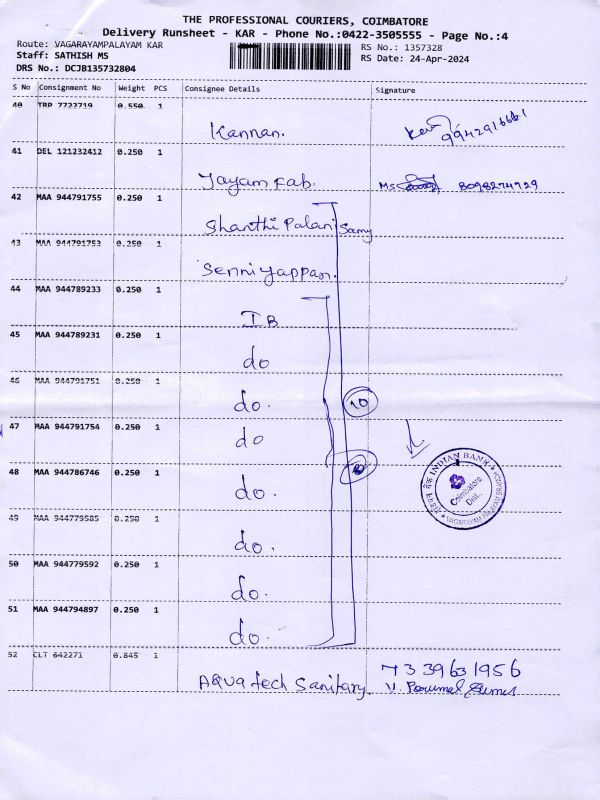 THE PROFESSIONAL COURIERS, COIMBATORE
Delivery Runsheet - KAR - Phone No.:0422-3505555 - Page No.:4
Route: VAGARAYAMPALAYAM KAR
RS No.: 1357328
Staff: SATHISH MS
RS Date: 24-Apr-2024
DRS No.: DCJB135732804
S No Consignment No Weight PCS Consignee Details Signature
40 TRP 7722719 0.550 1
Kannan.
9942916661
41 DEL 121232412 0.250 1
Jayam Fab. 8098274729
42 MAA 944791755 0.250 1
Shanthi Palani Samy
43 MAA 944791753 0.250 1
Senniyappan.
44 MAA 944789233 0.250 1
IB
45 MAA 944789231 0.250 1
do
46 MAA 944791751 0.250 1
do.
10
47 MAA 944791754 0.250 1
do
48 MAA 944786746 0.250 1
do.
INDIAN BANK
Coimbatore
Dist.
49 MAA 944779585 0.250 1
do.
50 MAA 944779592 0.250 1
do.
51 MAA 944794897 0.250 1
do.
52 CLT 642271 0.845 1
Aqua tech Sanitary. 7339631956